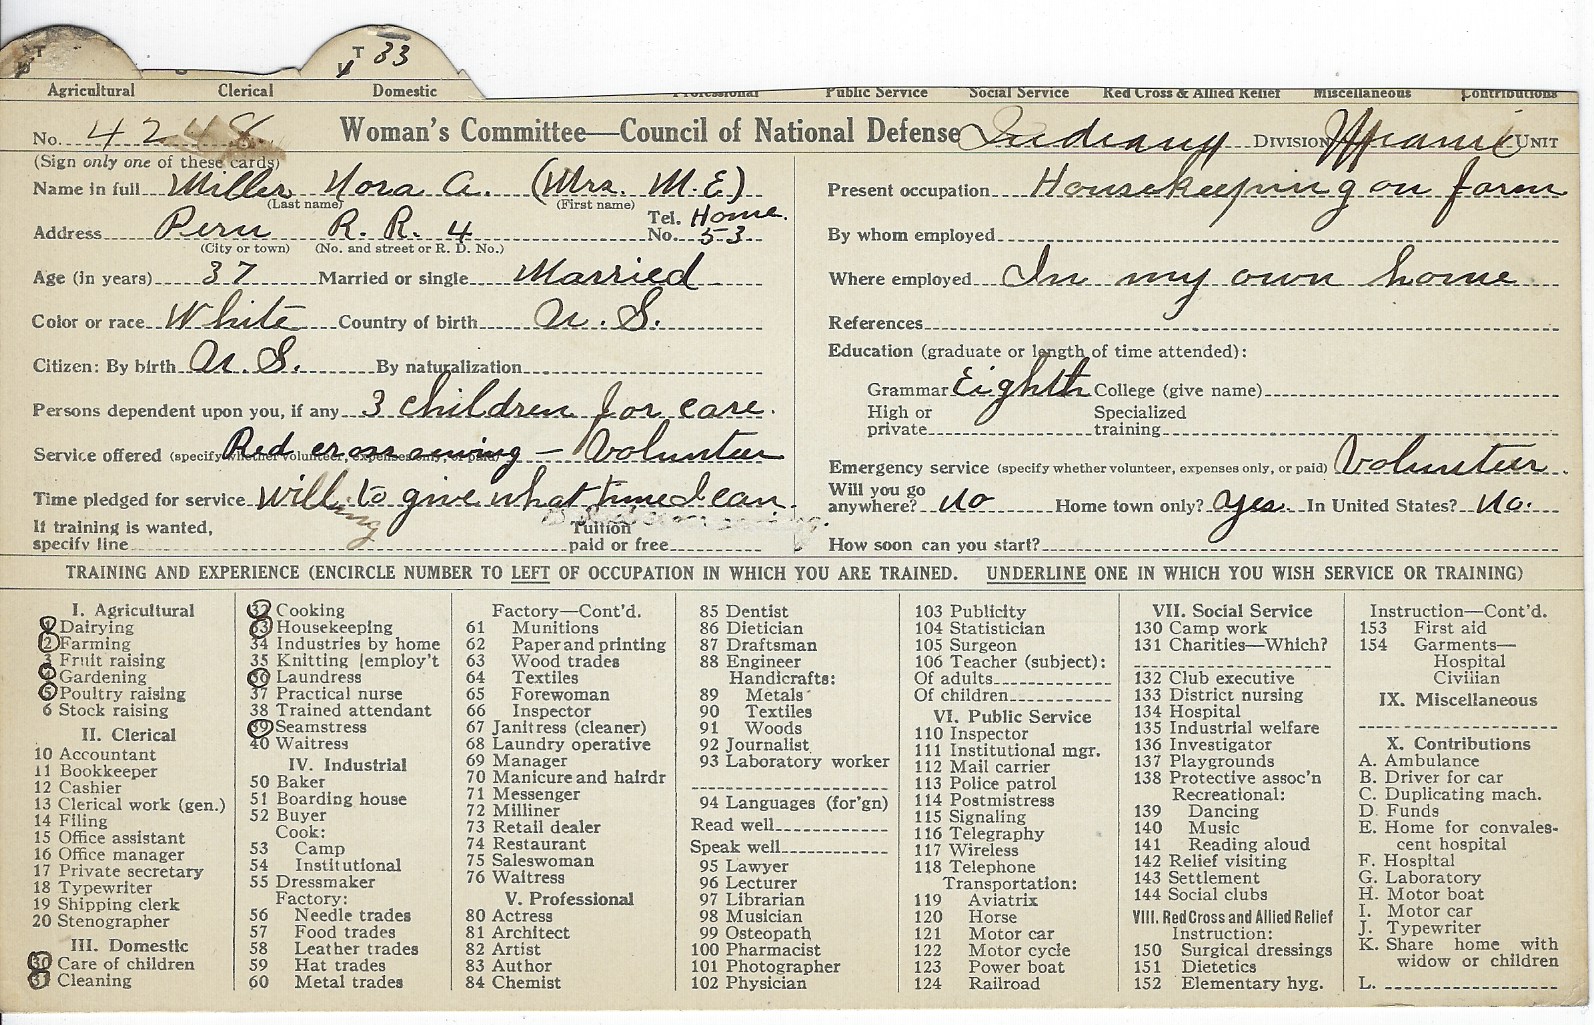 T T 33
Agricultural Clerical Domestic Professional Public Service Social Service Red Cross & Allied Relief Miscellaneous Contributions
No. 4248 Woman's Committee—Council of National Defense Indiana DIVISION Miami UNIT
(Sign only one of these cards)
Name in full Miller Nora A. (Mrs. M. E)
(Last name) (First name)
Address Peru R. R. 4 Tel. No. Home. 53
(City or town) (No. and street or R. D. No.)
Age (in years) 37 Married or single Married
Color or race White Country of birth U. S.
Citizen: By birth U. S. By naturalization
Persons dependent upon you, if any 3 children for care.
Service offered (specify whether volunteer, expenses only, or paid) Red cross sewing - Volunteer
Time pledged for service Willing to give what time I can.
If training is wanted,
specify line Tuition paid or free
Present occupation Housekeeping on farm
By whom employed
Where employed In my own home
References
Education (graduate or length of time attended):
Grammar Eighth College (give name)
High or private Specialized training
Emergency service (specify whether volunteer, expenses only, or paid) Volunteer.
Will you go anywhere? No Home town only? Yes. In United States? No.
How soon can you start?
TRAINING AND EXPERIENCE (ENCIRCLE NUMBER TO LEFT OF OCCUPATION IN WHICH YOU ARE TRAINED. UNDERLINE ONE IN WHICH YOU WISH SERVICE OR TRAINING)
I. Agricultural
1 Dairying
2 Farming
3 Fruit raising
4 Gardening
5 Poultry raising
6 Stock raising
II. Clerical
10 Accountant
11 Bookkeeper
12 Cashier
13 Clerical work (gen.)
14 Filing
15 Office assistant
16 Office manager
17 Private secretary
18 Typewriter
19 Shipping clerk
20 Stenographer
III. Domestic
30 Care of children
31 Cleaning
32 Cooking
33 Housekeeping
34 Industries by home
35 Knitting [employ't
36 Laundress
37 Practical nurse
38 Trained attendant
39 Seamstress
40 Waitress
IV. Industrial
50 Baker
51 Boarding house
52 Buyer
Cook:
53 Camp
54 Institutional
55 Dressmaker
Factory:
56 Needle trades
57 Food trades
58 Leather trades
59 Hat trades
60 Metal trades
Factory—Cont'd.
61 Munitions
62 Paper and printing
63 Wood trades
64 Textiles
65 Forewoman
66 Inspector
67 Janitress (cleaner)
68 Laundry operative
69 Manager
70 Manicure and hairdr
71 Messenger
72 Milliner
73 Retail dealer
74 Restaurant
75 Saleswoman
76 Waitress
V. Professional
80 Actress
81 Architect
82 Artist
83 Author
84 Chemist
85 Dentist
86 Dietician
87 Draftsman
88 Engineer
Handicrafts:
89 Metals
90 Textiles
91 Woods
92 Journalist
93 Laboratory worker
94 Languages (for'gn)
Read well
Speak well
95 Lawyer
96 Lecturer
97 Librarian
98 Musician
99 Osteopath
100 Pharmacist
101 Photographer
102 Physician
103 Publicity
104 Statistician
105 Surgeon
106 Teacher (subject):
Of adults
Of children
VI. Public Service
110 Inspector
111 Institutional mgr.
112 Mail carrier
113 Police patrol
114 Postmistress
115 Signaling
116 Telegraphy
117 Wireless
118 Telephone
Transportation:
119 Aviatrix
120 Horse
121 Motor car
122 Motor cycle
123 Power boat
124 Railroad
VII. Social Service
130 Camp work
131 Charities—Which?
132 Club executive
133 District nursing
134 Hospital
135 Industrial welfare
136 Investigator
137 Playgrounds
138 Protective assoc'n
Recreational:
139 Dancing
140 Music
141 Reading aloud
142 Relief visiting
143 Settlement
144 Social clubs
VIII. Red Cross and Allied Relief
Instruction:
150 Surgical dressings
151 Dietetics
152 Elementary hyg.
Instruction—Cont'd.
153 First aid
154 Garments—
Hospital
Civilian
IX. Miscellaneous
X. Contributions
A. Ambulance
B. Driver for car
C. Duplicating mach.
D. Funds
E. Home for convales-
cent hospital
F. Hospital
G. Laboratory
H. Motor boat
I. Motor car
J. Typewriter
K. Share home with
widow or children
L.